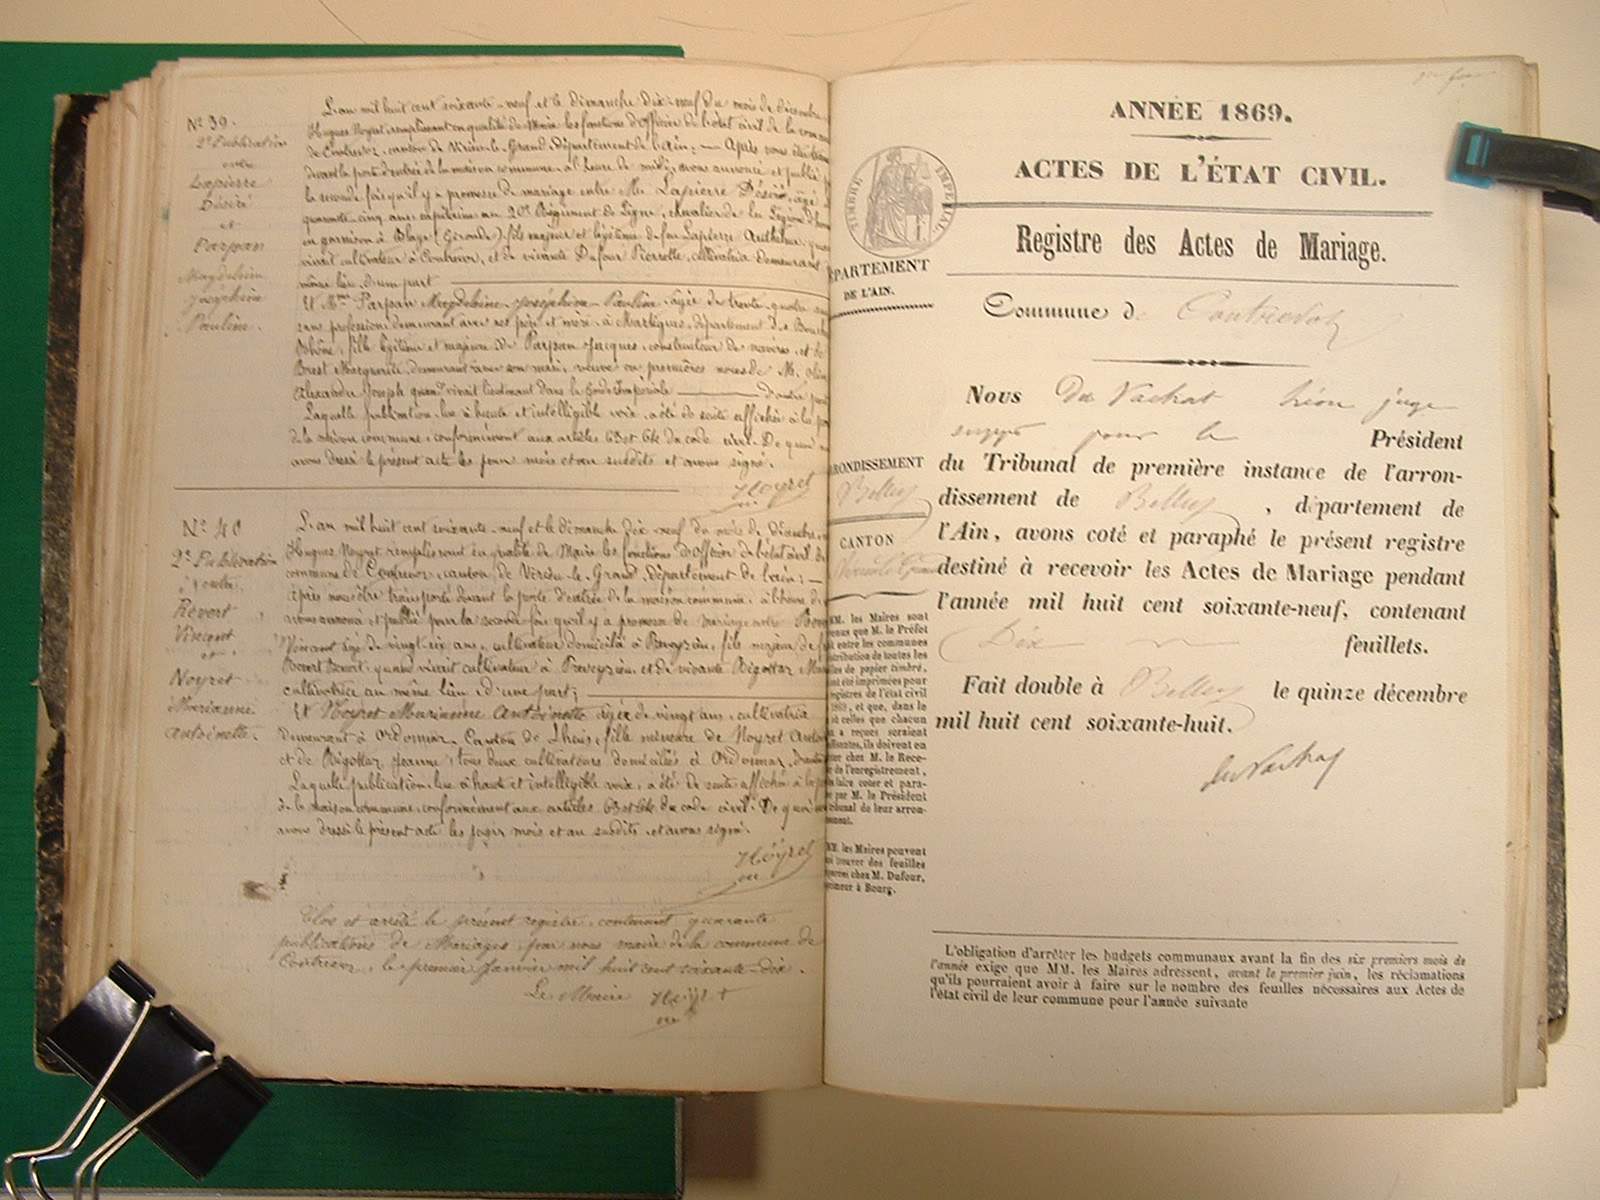 Nº 39.
2e Publication
entre
Lapierre
Désiré
et
Parpan
Magdeleine
Joséphine
Pauline.
L'an mil huit cent soixante-neuf et le dimanche dix-neuf du mois de décembre
Hugues Noyret remplissant en qualité de Maire les fonctions d'Officier de l'état civil de la com
de Contrevoz, canton de Virieu-le-Grand, département de l'ain; — Après nous être tran
devant la porte d'entrée de la maison commune, à l'heure de midi, avons annoncé et publié p
la seconde fois qu'il y a promesse de mariage entre Mr. Lapierre Désiré, âgé
quarante-cinq ans, capitaine au 20e Régiment de Ligne, chevalier de la Légion d'hon
en garnison à Blaye (Gironde), fils majeur et légitime de feu Lapierre Anthelme, quan
vivait cultivateur à Contrevoz, et de vivante Dufour Pierrette, cultivatrice demeurant
même lieu, d'une part
Et Mme Parpan Magdeleine-Joséphine-Pauline, âgée de trente quatre
sans profession, demeurant avec ses père et mère à Martigues, département des Bouches
Rhône, fille légitime et majeure de Parpan Jacques, constructeur de navires, et de
Brest Marguerite, demeurant avec son mari, veuve en premières noces de M.
Alexandre Joseph quand vivait lieutenant dans la Garde Impériale — d'autre part
Laquelle publication, lue à haute et intelligible voix, a été de suite affichée à la por
de la maison commune, conformément aux articles 63 et 64 du code civil. De quoi n
avons dressé le présent acte les jour, mois et an susdits et avons signé.
Noyret
Nº 40
2e Publication
entre
Révert
Vincent
et
Noyret
Marianne
Antoinette.
L'an mil huit cent soixante-neuf et le dimanche dix-neuf du mois de Décembre
Hugues Noyret remplissant en qualité de Maire les fonctions d'Officier de l'état civil de
commune de Contrevoz, canton de Virieu-le-Grand, département de l'ain; —
Après nous être transporté devant la porte d'entrée de la maison commune, à l'heure de
avons annoncé et publié pour la seconde fois qu'il y a promesse de mariage entre
Vincent âgé de vingt-six ans, cultivateur domicilié à Breyzieu, fils majeur de
Révert Benoit, quand vivait cultivateur à Breyzieu, et de vivante Bigottaz
cultivatrice au même lieu, d'une part;
Et Noyret Marianne Antoinette âgée de vingt ans, cultivatrice
demeurant à Ordonnaz, Canton de Lhuis, fille mineure de Noyret Antoi
et de Bigottaz Jeanne, tous deux cultivateurs domiciliés à Ordonnaz, d'autre
Laquelle publication, lue à haute et intelligible voix, a été de suite affichée à la p
de la maison commune, conformément aux articles 63 et 64 du code civil. De quoi n
avons dressé le présent acte les jour, mois et an susdits, et avons signé.
Noyret
Clos et arrêté le présent registre, contenant quarante
publications de Mariages, par nous maire de la commune de
Contrevoz, le premier Janvier mil huit cent soixante-dix.
Le Maire Noyret
ANNÉE 1869.
ACTES DE L'ÉTAT CIVIL.
TIMBRE IMPÉRIAL
Registre des Actes de Mariage.
PARTEMENT
DE L'AIN.
Commune de Contrevoz
Nous Du Vachat Léon juge
suppt pour le Président
du Tribunal de première instance de l'arron-
dissement de Belley, département de
l'Ain, avons coté et paraphé le présent registre
destiné à recevoir les Actes de Mariage pendant
l'année mil huit cent soixante-neuf, contenant
Dix feuillets.
Fait double à Belley le quinze décembre
mil huit cent soixante-huit.
du Vachat
RONDISSEMENT
Belley
CANTON
Virieu le Grand
MM. les Maires sont
enus que M. le Préfet
it entre les communes
stribution de toutes les
lles de papier timbré,
ont été imprimées pour
egistres de l'état civil
1869, et que, dans le
où celles que chacun
a reçues seraient
ffisantes, ils doivent en
er chez M. le Rece-
de l'enregistrement,
s faire coter et para-
r par M. le Président
ribunal de leur arron-
ement.
MM. les Maires peuvent
si trouver des feuilles
arées chez M. Dufour,
rimeur à Bourg.
L'obligation d'arrêter les budgets communaux avant la fin des six premiers mois de
l'année exige que MM. les Maires adressent, avant le premier juin, les réclamations
qu'ils pourraient avoir à faire sur le nombre des feuilles nécessaires aux Actes de
l'état civil de leur commune pour l'année suivante